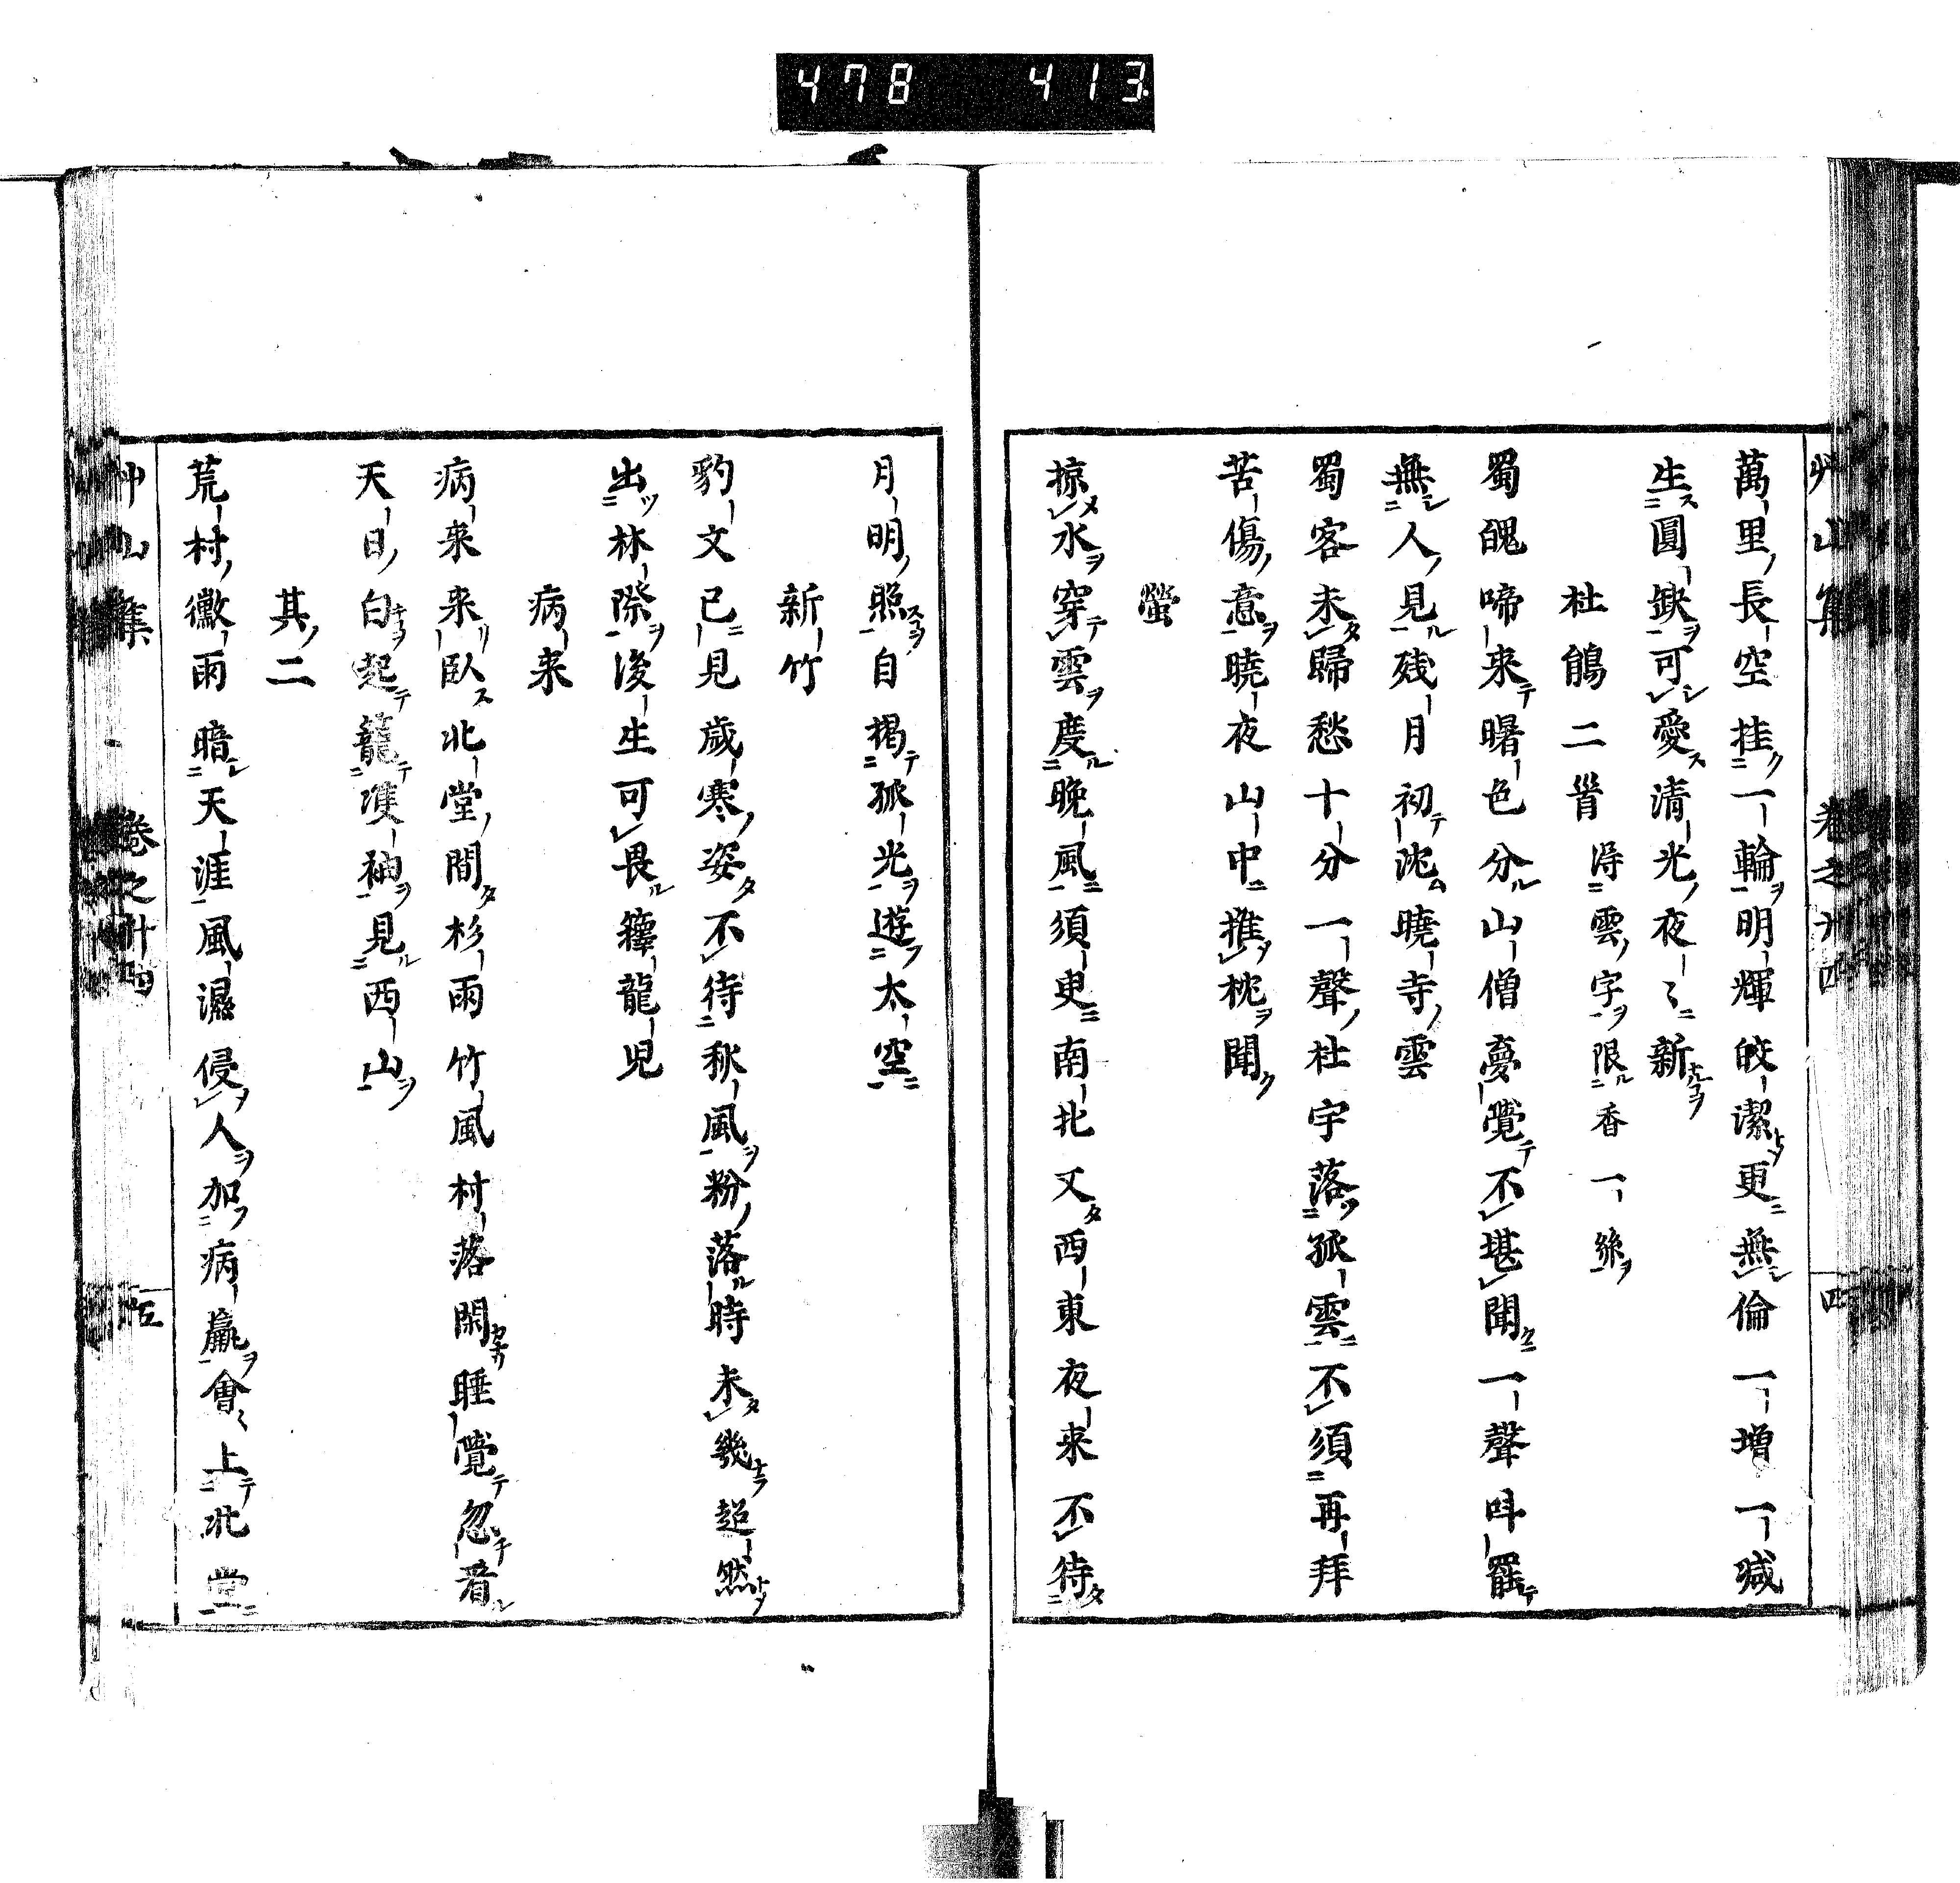 478 413
艸山集 卷之廿四 四
萬里長空挂一輪明輝皎潔更無倫一増一減
生圓缺可愛清光夜〻新
杜鵑二首 得雲字限香一絲
蜀魄啼來曙色分山僧夢覺不堪聞一聲呌罷
無人見残月初沈曉寺雲
蜀客未歸愁十分一聲杜宇落孤雲不須再拜
苦傷意曉夜山中推枕聞
螢
掠水穿雲度晩風須臾南北又西東夜来不待
月明照自掲孤光遊太空
新竹
豹文已見歳寒姿不待秋風粉落時未幾超然
出林際後生可畏籜龍児
病来
病来来臥北堂間杉雨竹風村落閑睡覺忽看
天日白起籠雙袖見西山
其二
荒村黴雨暗天涯風濕侵人加病羸會〻上北堂
艸山集 卷之廿四 五